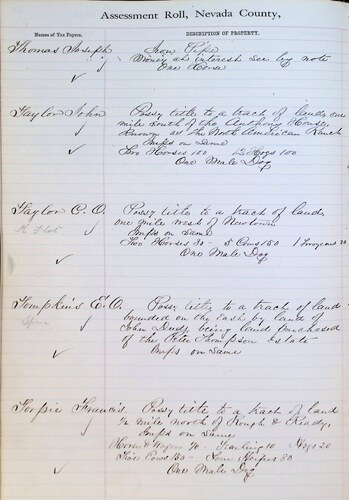 Assessment Roll, Nevada County,
Names of Tax Payers. DESCRIPTION OF PROPERTY.
Thomas Joseph Iron Pipe
Money at interest Sec by note
One Horse
Taylor John Possy title to a tract of land one
mile south of the Anthony House,
Known as the North American Ranch
Imps on Same
Two Horses 100 Hogs 100
One Male Dog
Taylor C. O. Possy title to a tract of land
one mile west of Newtown
Imps on Same
Two Horses 80 - 5 Cows 150 1 20
One Male Dog
Tompkins E. O. Possy title to a tract of land
bounded on the East by land of
John being land purchased
of the Thompson Estate
Imps on Same
Francis Possy title to a tract of land
½ mile north of Rough & Ready,
Imps on Same
Horse & Wagon Yearling 10 Hogs 20
Cows Heifers 80
One Male Dog